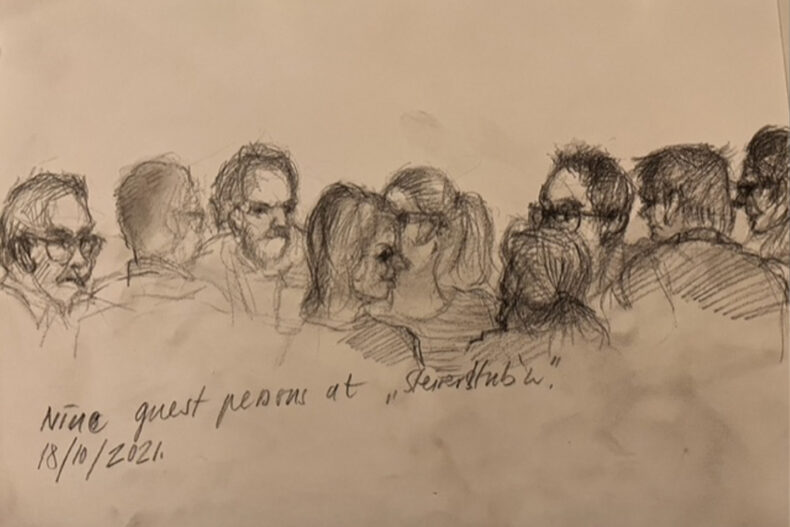 Nine guest persons at „Steirerstub'n".
18/10/2021.